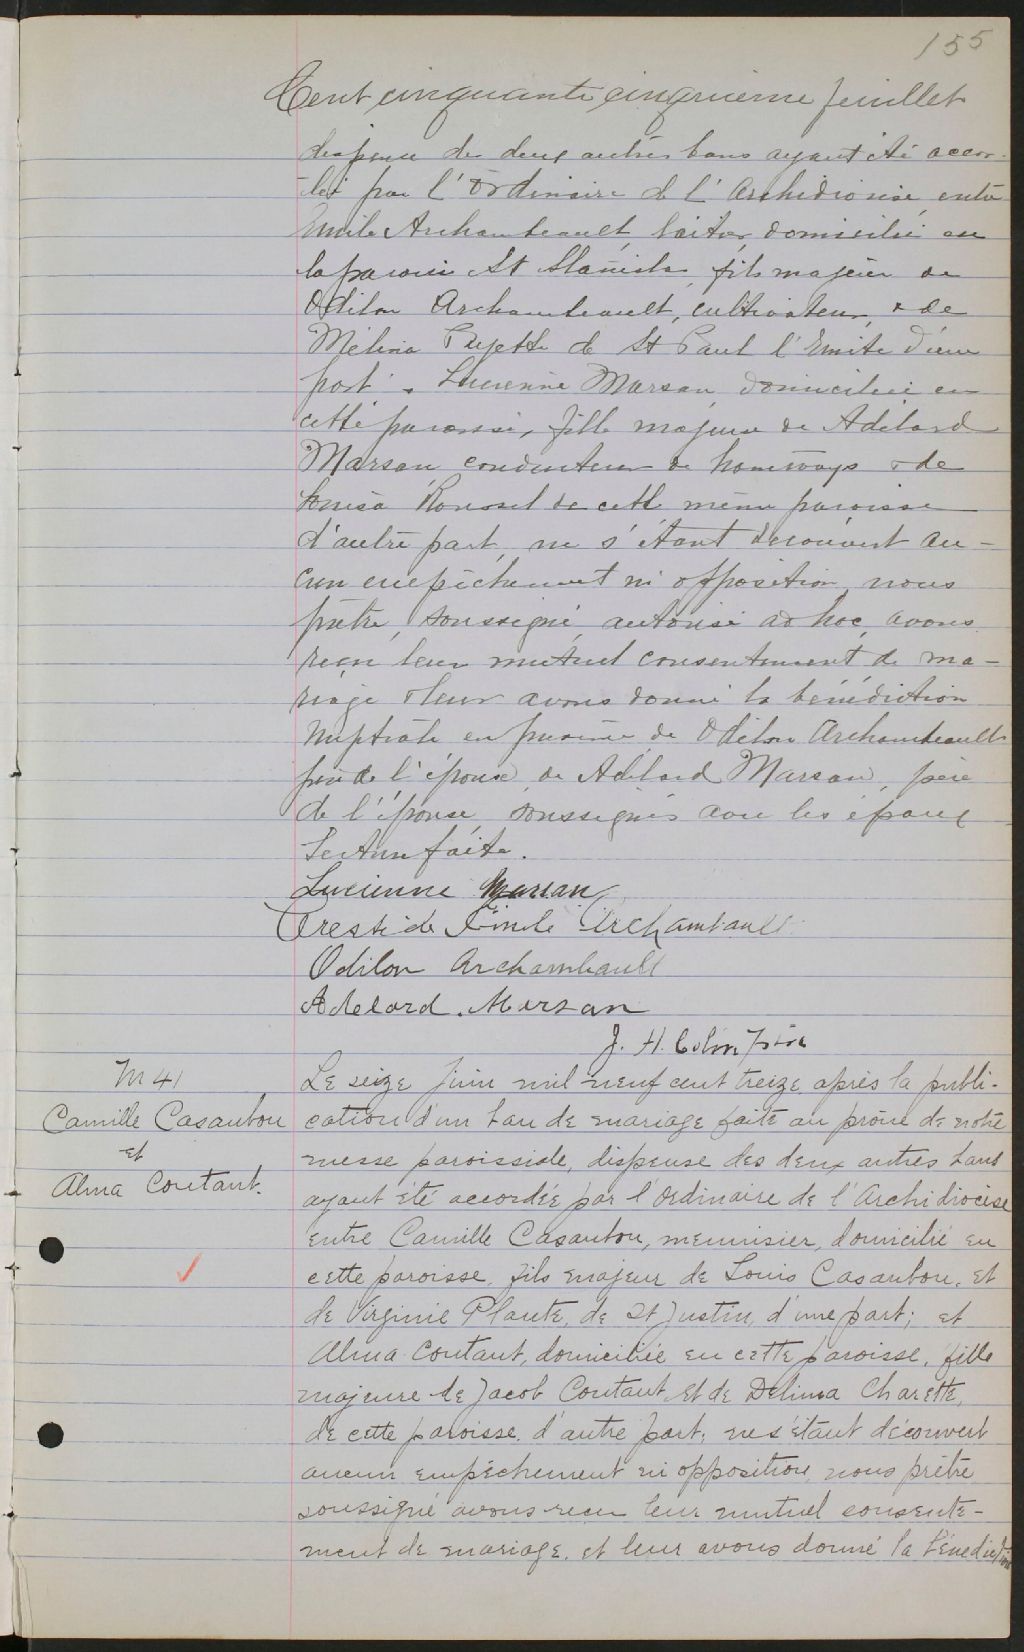 155
Cent cinquante cinquième feuillet
dispense de deux autres bans ayant été accor-
dés par l'Ordinaire de l'Archidiocèse, entre
Emile Archambeault, laitier domicilié en
la paroisse St Stanislas, fils majeur de
Odilon Archambeault, cultivateur, & de
Mélina Payette de St Paul l'Ermite d'une
part & Lucienne Marsan domiciliée en
cette paroisse, fille majeure de Adélard
Marsan conducteur de tramways & de
Louisa de cette même paroisse
d'autre part, ne s'étant découvert au-
cun empêchement ni opposition, nous
prêtre, soussigné, autorisé ad hoc, avons
reçu leur mutuel consentement de ma-
riage & leur avons donné la bénédiction
nuptiale en présence de Odilon Archambeault
père de l'époux, de Adélard Marsan, père
de l'épouse, soussignés avec les époux
Lecture faite.
Lucienne Marsan
Emile Archambault
Odilon Archambault
Adelard. Marsan
J. H. ptre
M 41
Camille Casaubon
et
Alma Coutant.
Le seize juin mil neuf cent treize, après la publi-
cation d'un ban de mariage faite au prône de notre
messe paroissiale, dispense des deux autres bans
ayant été accordée par l'Ordinaire de l'Archidiocèse
entre Camille Casaubon, menuisier, domicilié en
cette paroisse, fils majeur de Louis Casaubon, et
de Virginie Plante, de St Justin, d'une part; et
Alma Coutant, domiciliée en cette paroisse, fille
majeure de Jacob Coutant et de Delima Charette,
de cette paroisse, d'autre part; ne s'étant découvert
aucun empêchement ni opposition, nous prêtre
soussigné avons reçu leur mutuel consente-
ment de mariage, et leur avons donné la bénédiction